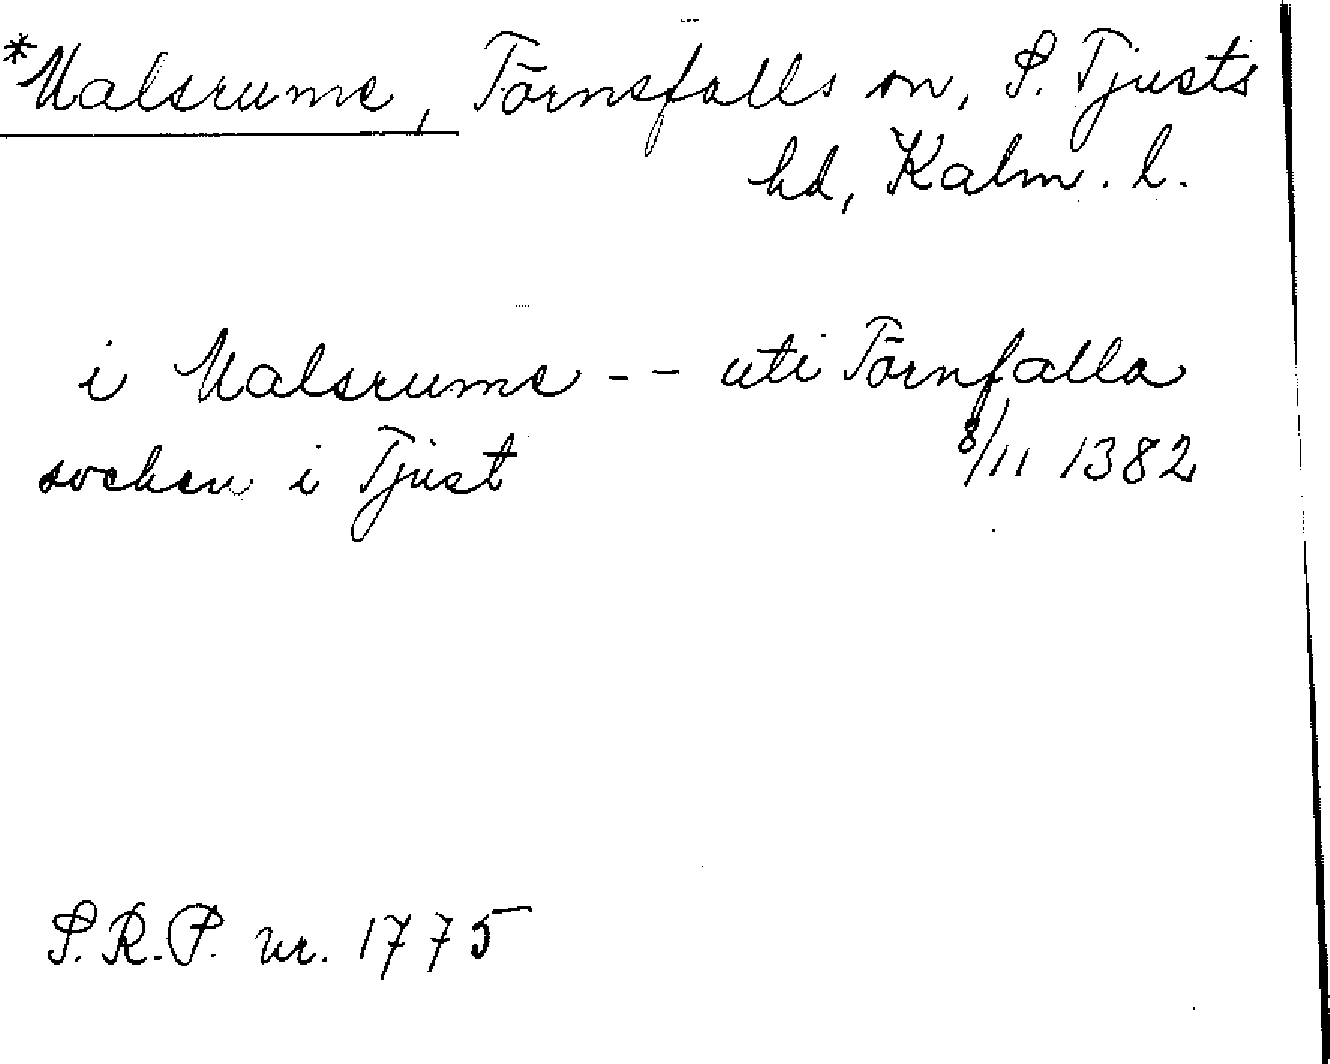 *Malsrume, Törnsfalls sn, S. Tjusts
hd, Kalm. l.
i Malsrume -- uti Törnfalla
socken i Tjust 8/11 1382
S.R.P. nr. 1775